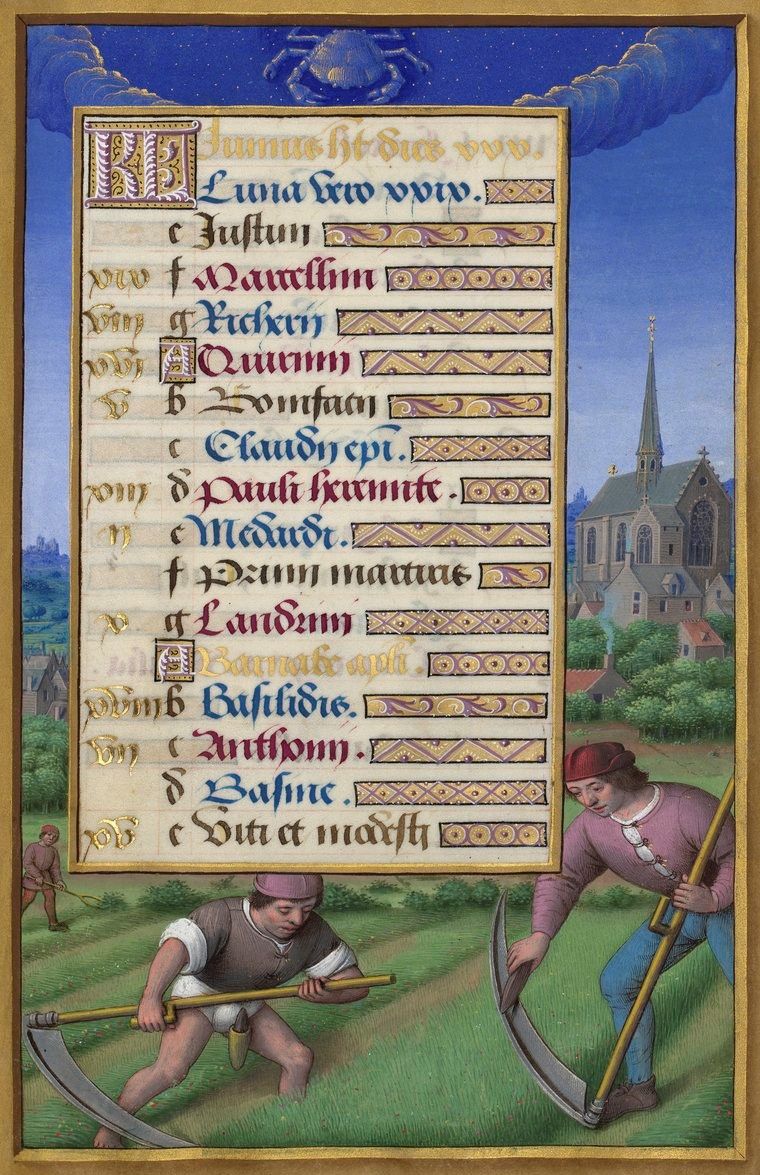 KL Junius ht dies xxx.
Luna vero xxix.
e Justini
xix f Marcellini
viii g Richerii
xvi A Quirini
v b Bonifacii
c Claudii epi.
xiii d Pauli heremite.
ii e Medardi.
f Primi martiris
x g Landrini
A Barnabe apli.
xviii b Basilidis.
vii c Anthonii.
d Basine.
xv e Viti et modesti